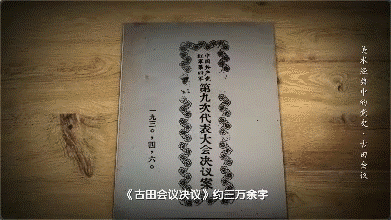 美术经典中的党史·古田会议
中国共产党
红军第四军
第九次代表大会决议案
一九三〇·四·六
《古田会议决议》约三万余字